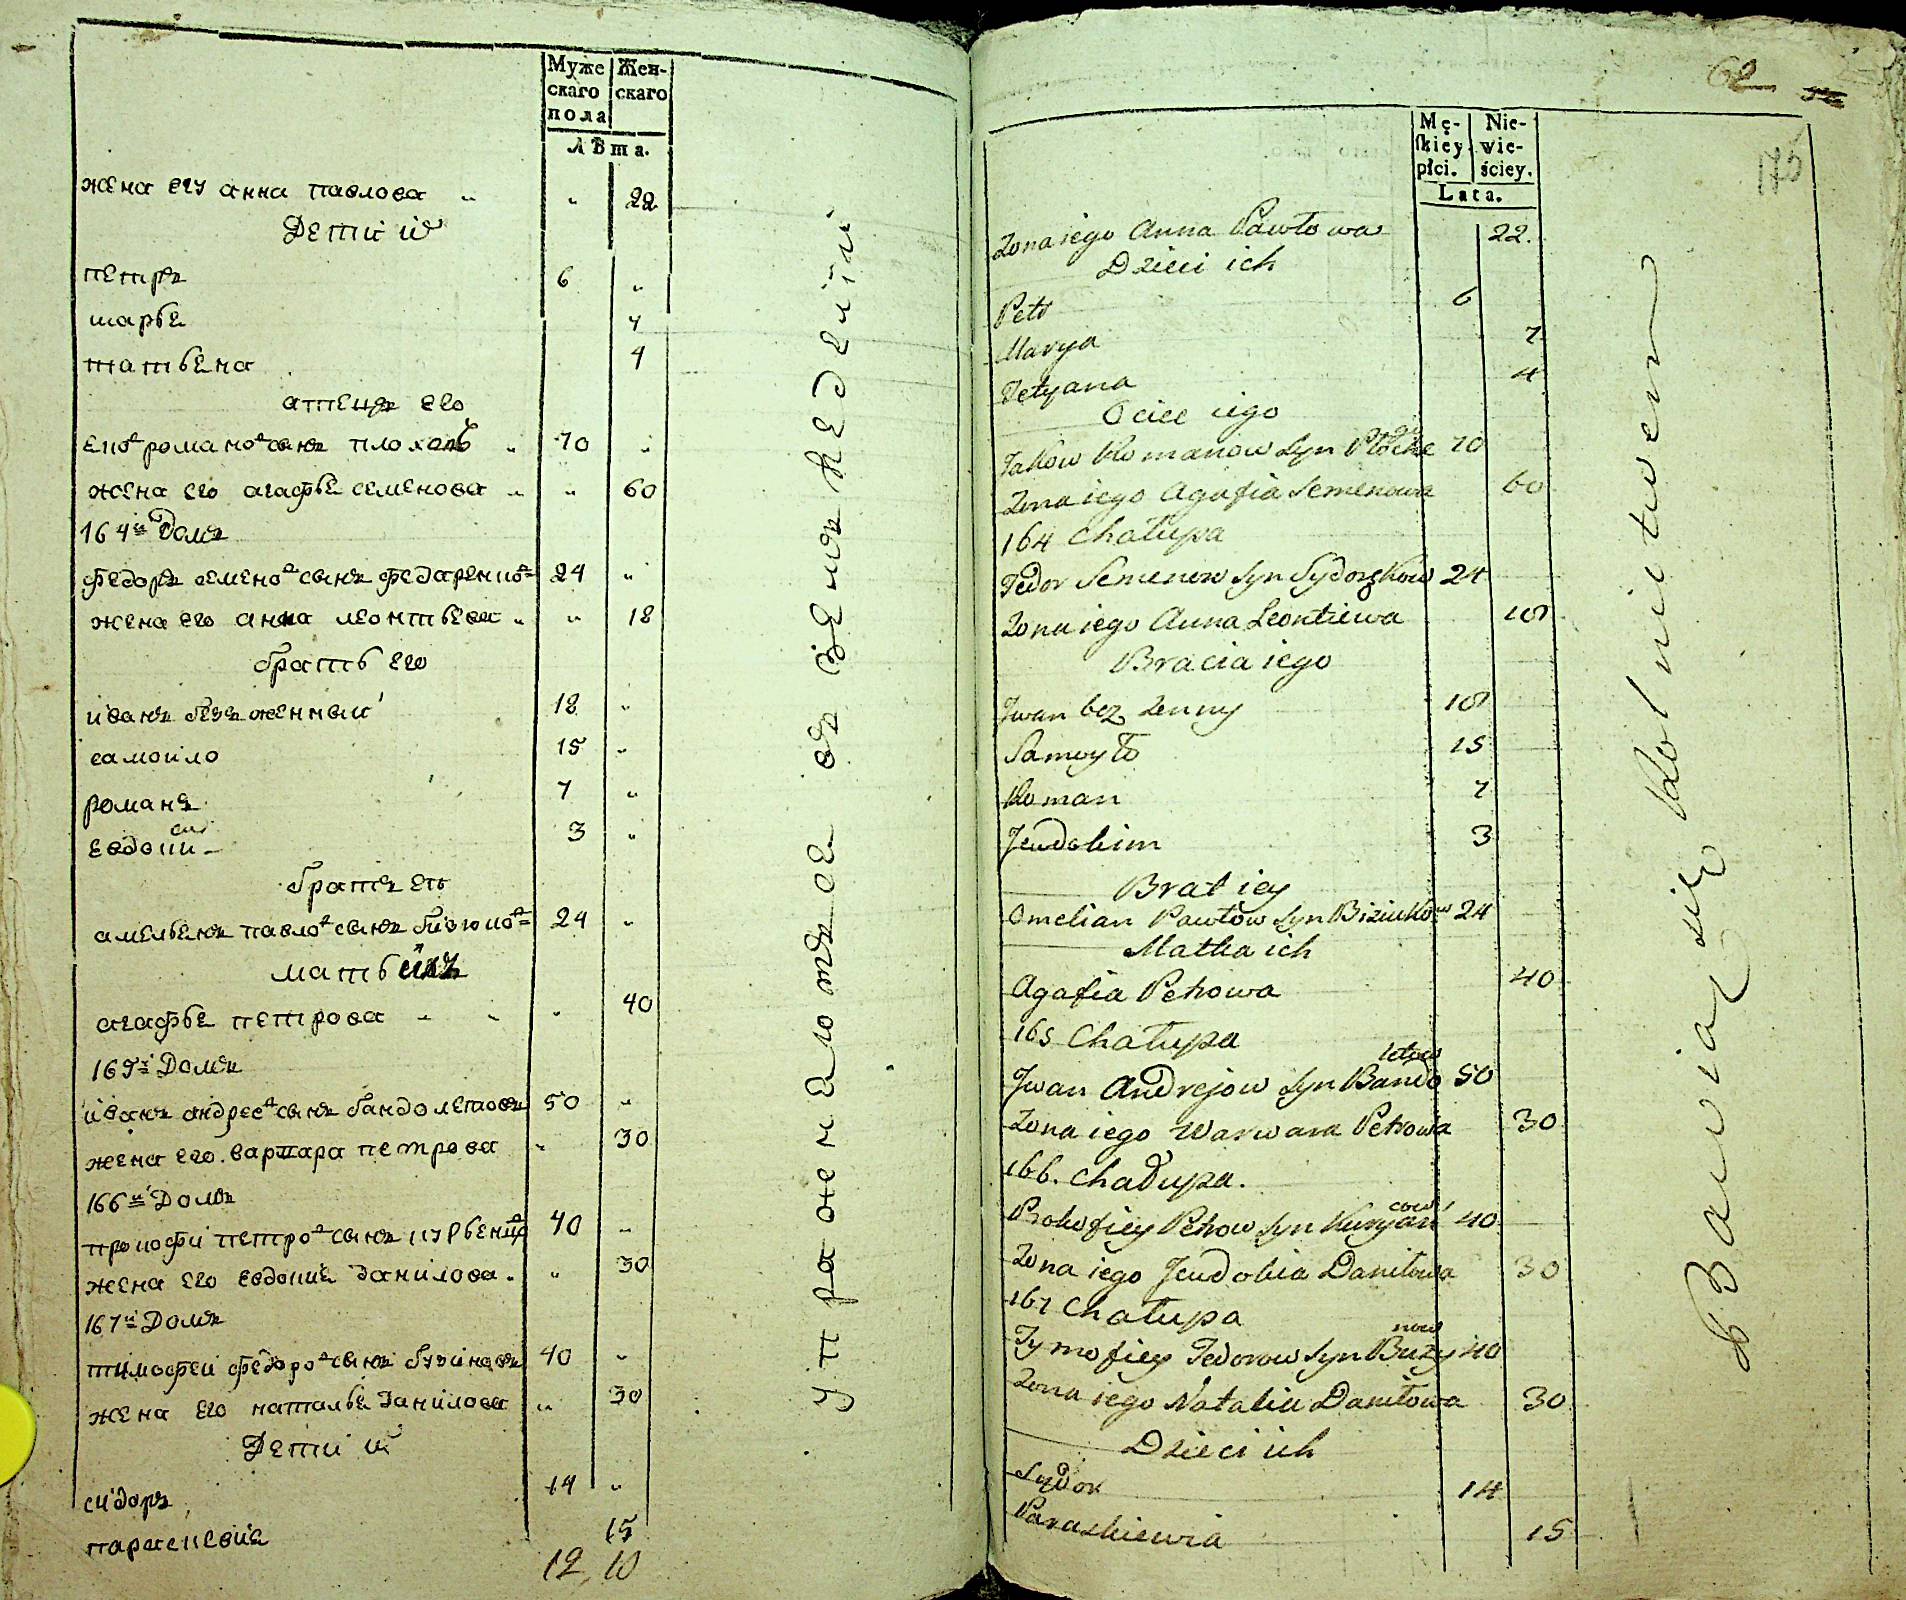 Муже
скаго
пола
Жен-
скаго
лѣта.
жена егу анна павлова " " 22
Дети их
петръ 6 "
марье 7
татьена 4
атецъ его
романов сынъ плохой " 70 "
жена его агафье семенова " " 60
164й Домъ
федоръ семенов сынъ 24 "
жена его анна леонтьева " " 18
брать его
иванъ безженный 18 "
самоило 15 "
романъ 7 "
3 "
братъ
амельенъ павлов сынъ 24 "
мать ихъ
агафье петрова - - " 40
165й Домъ
иванъ андреев сынъ бандолетовъ 50 "
жена его варвара петрова " 30
166й Домъ
прокофи петров сынъ 40 "
жена его евдокие данилова. " 30
167й Домъ
тимофей федоров сынъ бузиновъ 40 "
жена его наталье данилова " 30
Дети их
сидоръ 14 "
15
12, 10
упражнеаютъсе въ земъледелии
62
175
Mę-
skiey
płci.
Nie-
wie-
ściey.
Lata.
Zona iego Anna Pawłowa 22.
Dzieci ich
Petr 6
Marya 7
Tetyana 4
Ociec iego
Jakow Romanow Syn 70
Zona iego Agafia Semenowa 60
164 Chałupa
Fedor Semenow Syn 24
Zona iego Anna Leontiewa 18
Bracia iego
Jwan bez zenny 18
Samoyło 15
Roman 7
Jeudokim 3
Brat iey
Omelian Pawłow Syn Biziukow 24
Matka ich
Agafia Petrowa 40
165 Chałupa
Jwan Andrejow Syn Bandoletow 50
Zona iego Warwara Petrowa 30
166. Chałupa.
Prokofiey Petrow Syn 40
Zona iego Jeudokia Daniłowa 30
167 Chałupa
Tymofiey Fedorow Syn Buzynow 40
Zona iego Natalia Daniłowa 30
Dzieci ich
Sydor 14
Paraskiewia 15
Bawią się Rolnictwem